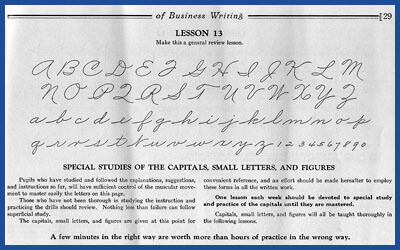 of Business Writing
29
LESSON 13
Make this a general review lesson.
A B C D E F G H I J K L M
N O P Q R S T U V W X Y Z
a b c d e f g h i j k l m n o p
q r s t u v w x y z 1 2 3 4 5 6 7 8 9 0
SPECIAL STUDIES OF THE CAPITALS, SMALL LETTERS, AND FIGURES
Pupils who have studied and followed the explanations, suggestions,
and instructions so far, will have sufficient control of the muscular move-
ment to master easily the letters on this page.
Those who have not been thorough in studying the instruction and
practicing the drills should review. Nothing less than failure can follow
superficial study.
The capitals, small letters, and figures are given at this point for
convenient reference, and an effort should be made hereafter to employ
these forms in all the written work.
One lesson each week should be devoted to special study
and practice of the capitals until they are mastered.
Capitals, small letters, and figures will all be taught thoroughly in
the following lessons.
A few minutes in the right way are worth more than hours of practice in the wrong way.